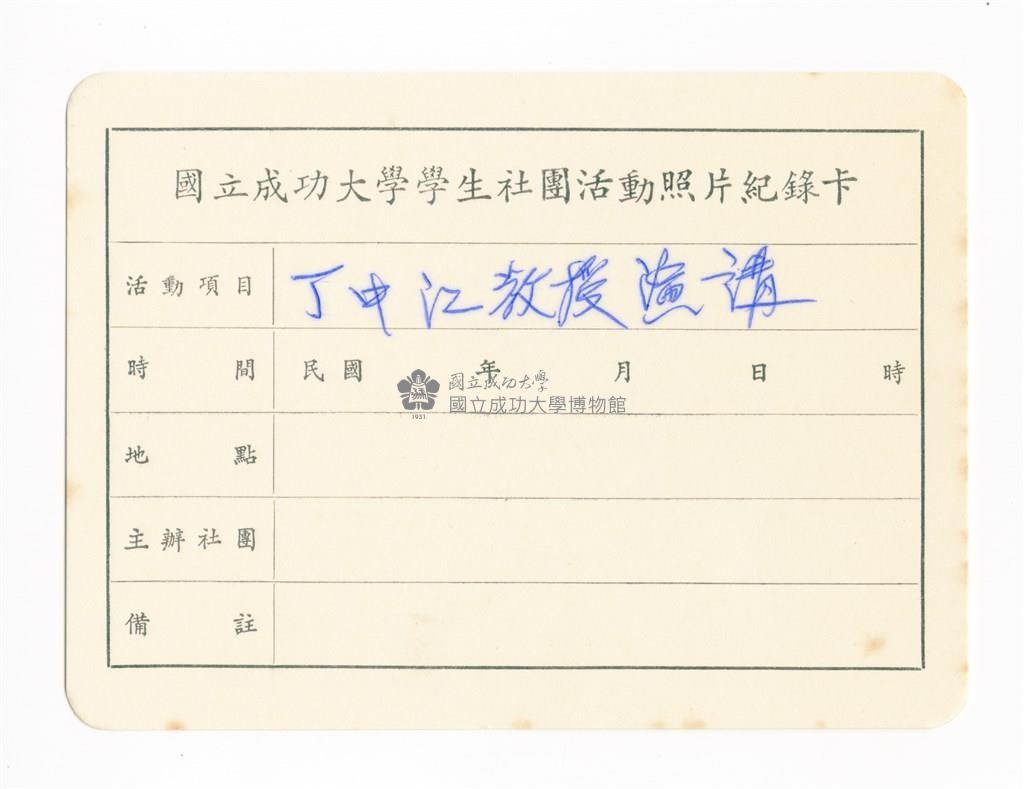 國立成功大學學生社團活動照片紀錄卡
活動項目 丁中江教授演講
時間 民國 年 月 日 時
國立成功大學
國立成功大學博物館
1931
地點
主辦社團
備註